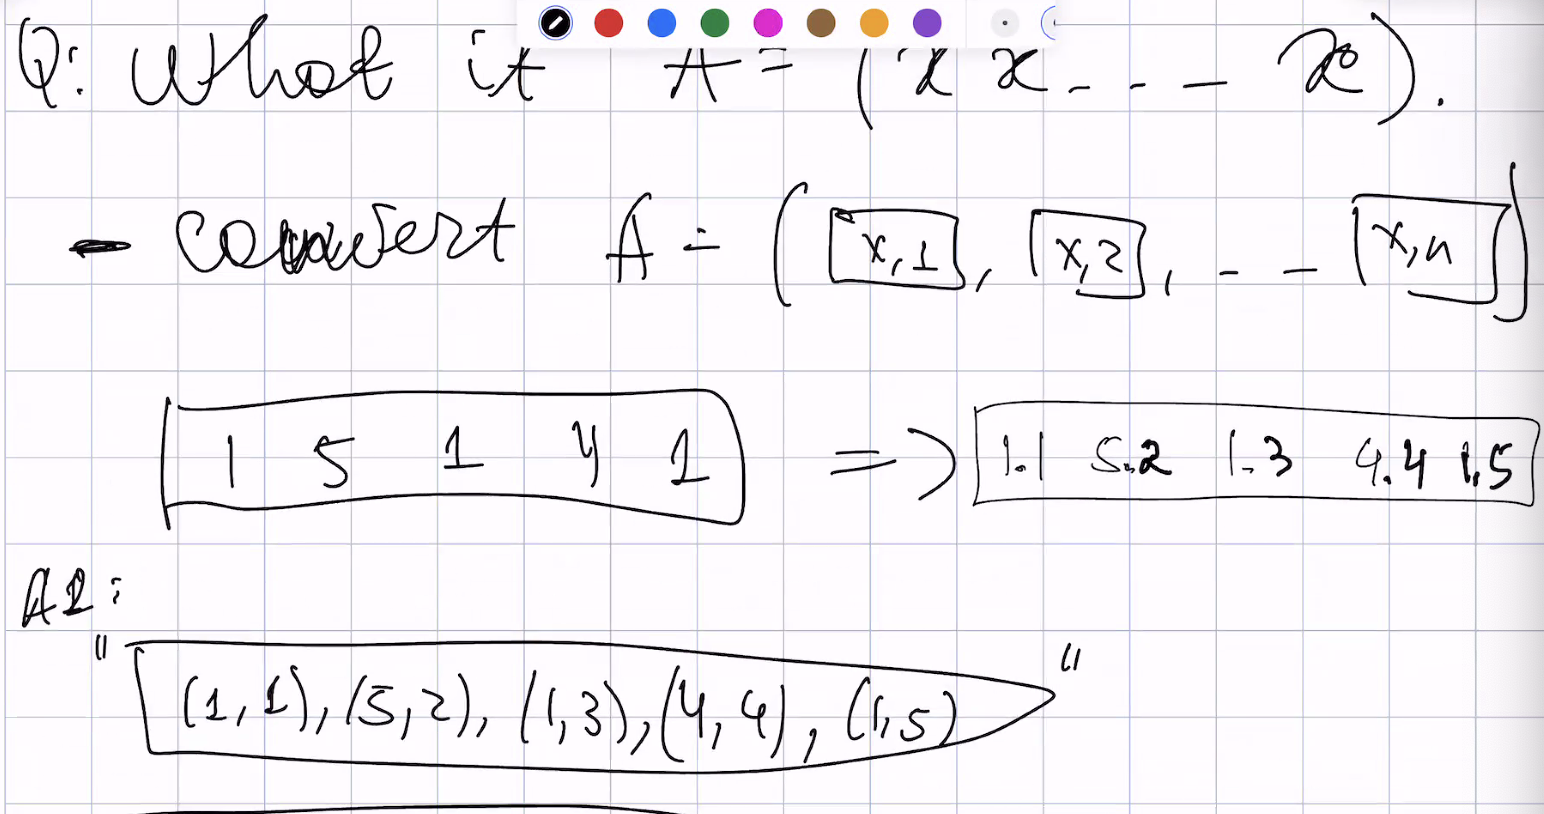 Q: What if A = (x x - - - x).
- convert A = (x,1, x,2, - - x,n)
1 5 1 4 1 => 1.1 5.2 1.3 4.4 1.5
A1:
" (1,1), (5,2), (1,3), (4,4), (1,5) "